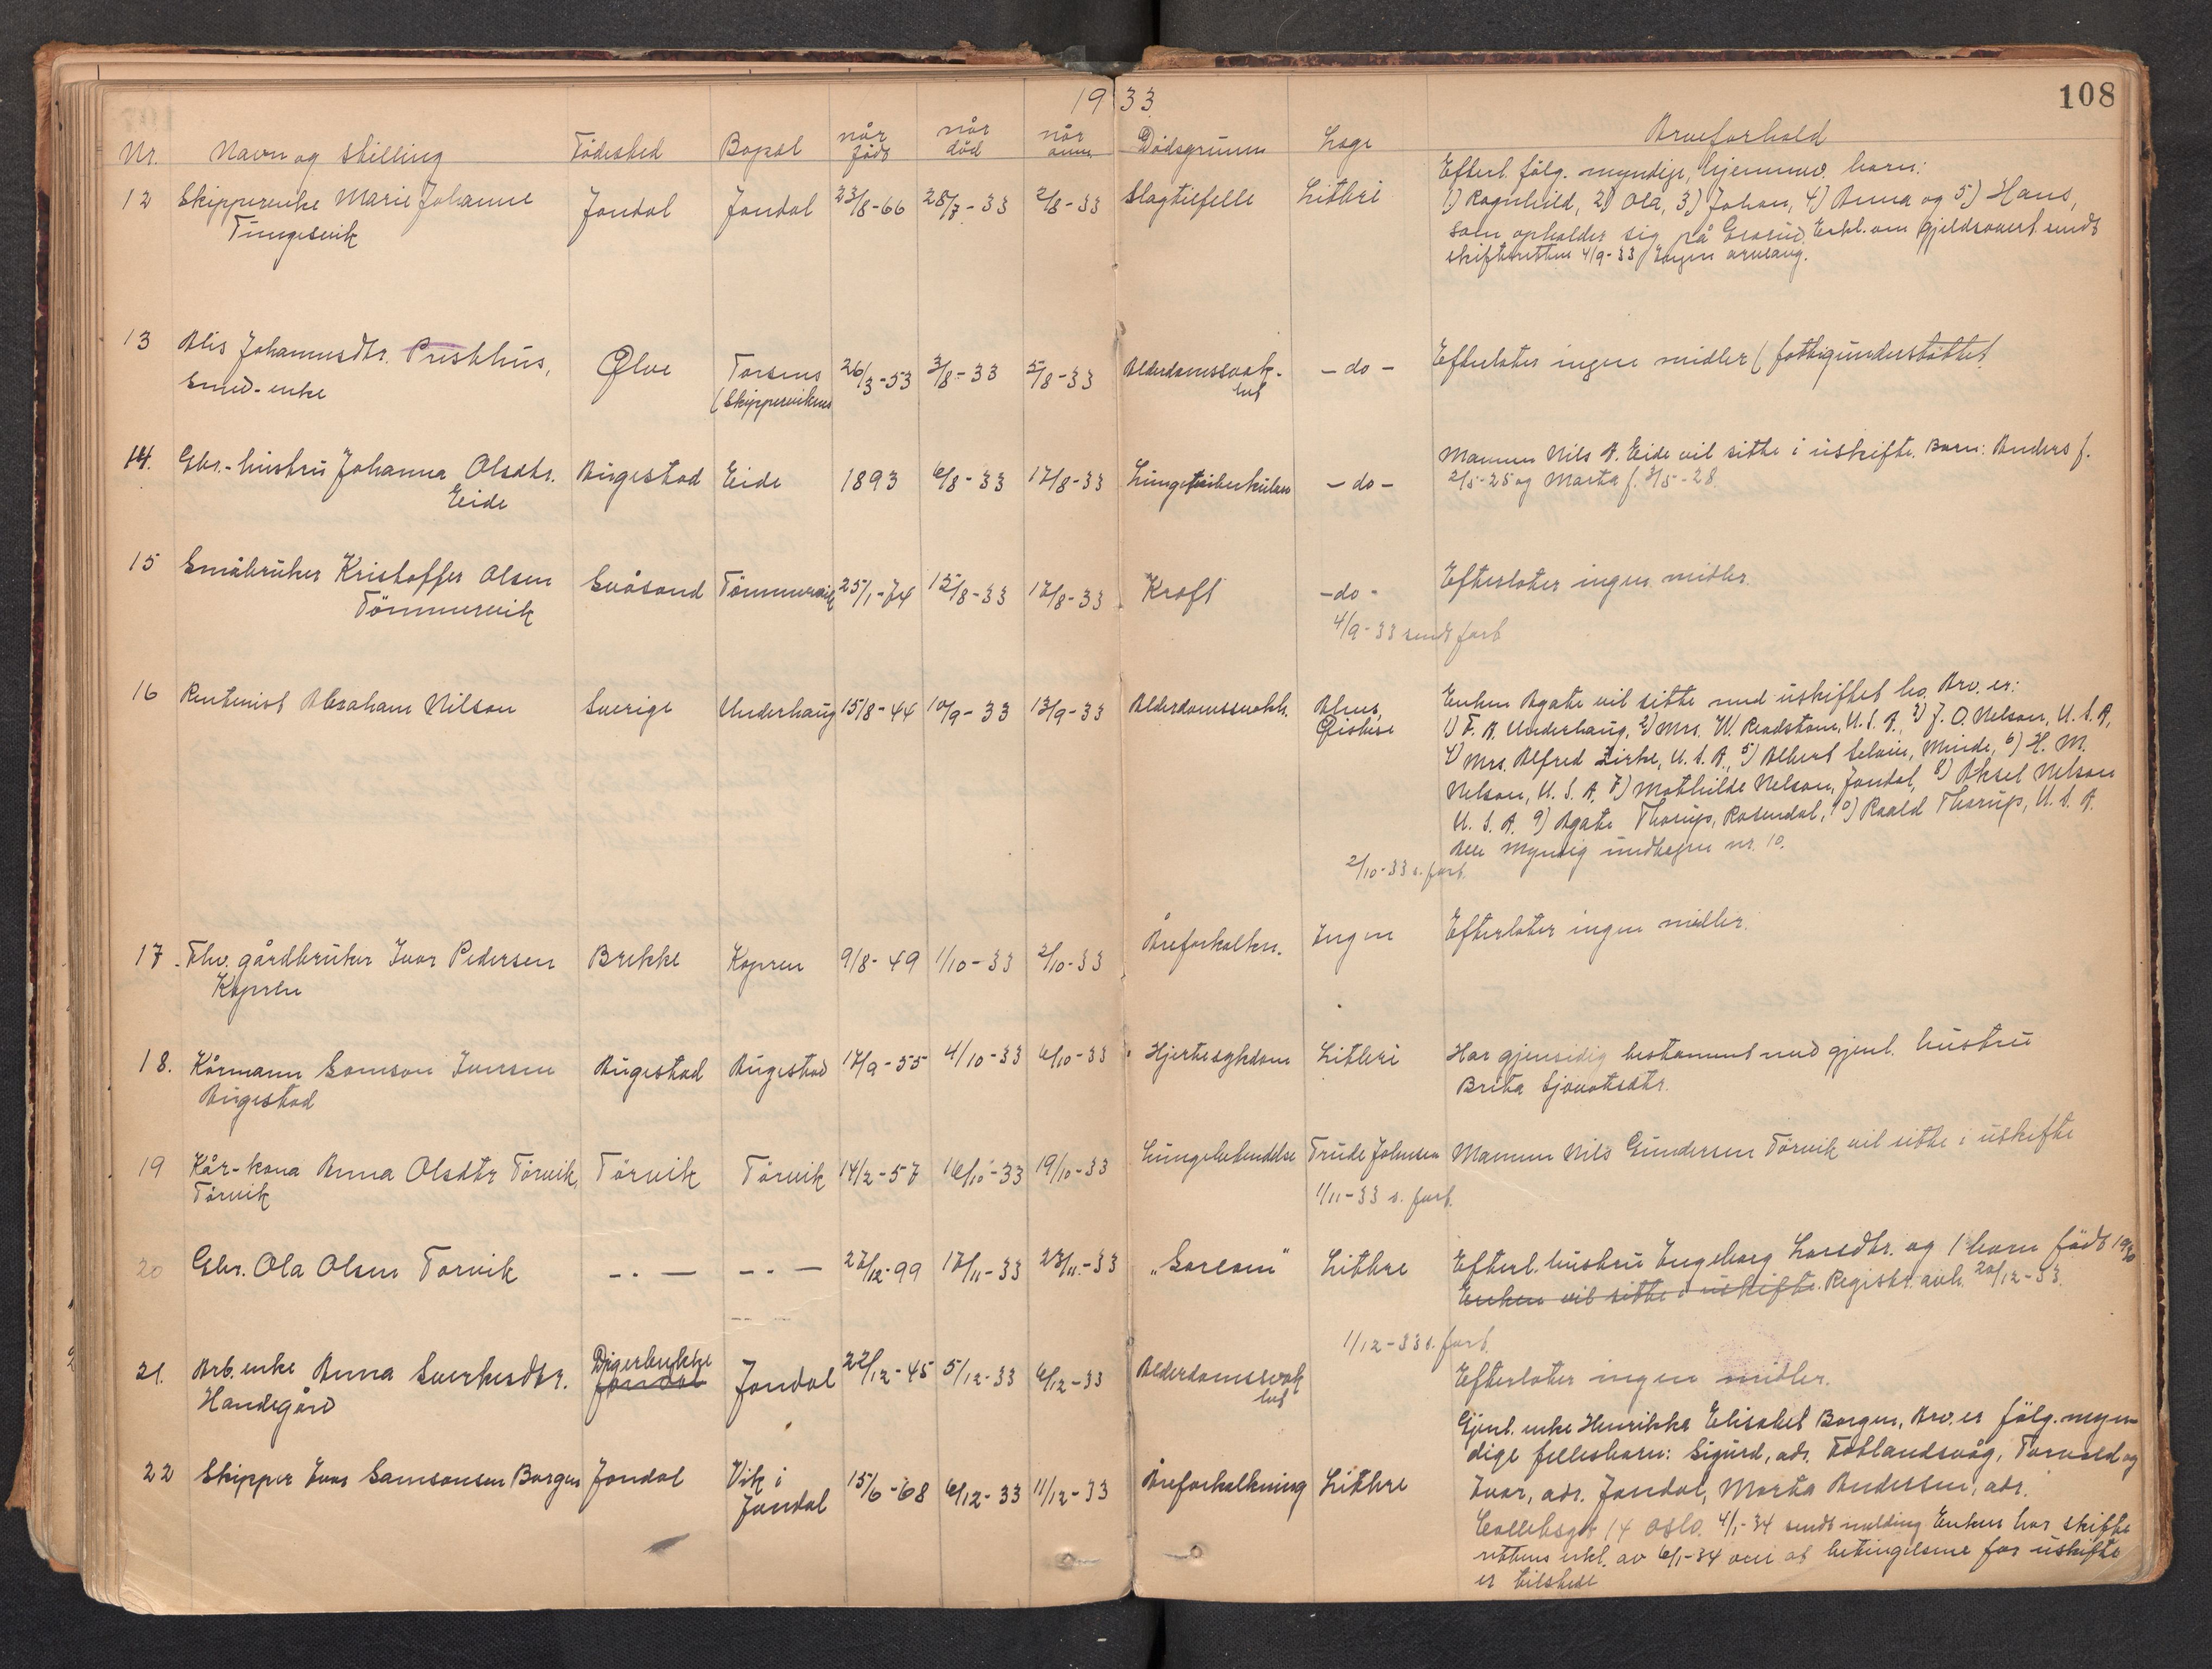 1933
108
Nr. Navn og stilling Födested Bopel når født når död når anm. Dödsgrunn Lege Arveforhold
12 Skipperenke Marie Johanne Jondal Jondal 23/8-66 28/7-33 2/8-33 Slagtilfelle Litleri Efterl. fölg. myndige, hjemmev. barn:
Tungesvik
1) Ragnhild, 2) Ola, 3) Johan, 4) Anna og 5) Hans,
som opholder sig på Grorud. Erkl. om gjeldsovert. sendt
skifteretten 4/9-33 Ingen
13 Alis Johannesdtr. Presthus, Ølve Torsnes 26/3-53 3/8-33 5/8-33 Alderdomssvak- -do- Efterlater ingen midler (fattigunderstöttet.
Smed-enke (Skippervikens het
14. Gbr.-hustru Johanna Olsdtr. Augestad Eide 1893 6/8-33 17/8-33 Lungetuberkulose -do- Mannen Nils A. Eide vil sitte i uskifte. Barn: Anders f.
Eide 2/5-25 og Marta f. 3/5-28.
15 Småbruker Kristoffer Olsen Svåsand Tömmervik 25/1-74 15/8-33 17/8-33 Kreft -do- Efterlater ingen midler.
Tömmervik
4/9-33 sendt fort.
16 Rentenist Abraham Nilson Sverige Underhaug 15/8-44 10/9-33 13/9-33 Alderdomssvakh. Øistese Enken Agate vil sitte med uskiftet bo. Arv. er:
1) F. A. Underhaug, 2) Mrs. W. Readstone, U.S.A., 3) J. O. Nelson, U.S.A.,
4) Mrs. Alfred Zirke, U.S.A., 5) Albert Selvin, Minde, 6) H. M.
Nelson, U.S.A. 7) Mathilde Nelson, Jondal, 8) Aksel Nelson
U.S.A. 9) Agate Thorup, Rosendal, 10) Roald Thorup, U.S.A.
Alle myndig undtagen nr. 10.
2/10-33 s. fort.
17. Fhv. gårdbruker Ivar Pedersen Brekke Kopren 9/8-49 1/10-33 2/10-33 Åreforkalkn. Ingen Efterlater ingen midler.
Kopren
18. Kårmann Samson Iversen Augestad Augestad 17/9-55 4/10-33 6/10-33 Hjertesykdom Litleri Har gjensidig testament med gjenl. hustru
Augestad Brita Sjovatsdtr.
19 Kår-kona Anna Olsdtr Törvik, Törvik Törvik 14/2-57 16/10-33 19/10-33 Lungebetendelse Trude Johnsen Mannen Nils Gundersen Törvik vil sitte i uskifte
Törvik 1/11-33 s. fort.
20 Gbr. Ola Olsen Torvik -..- -..- 27/12-99 17/11-33 23/11-33 "Sarcom" Litlere Efterl. hustru Engeborg Larsdtr. og 1 barn födt 1930
Enken vil sitte i uskifte. Registr. avh. 20/12-33.
1/12-33 s. fort.
21. Arb. enke Anna Sverkesdtr. Digerbrekke Jondal Jondal 22/12-45 5/12-33 6/12-33 Alderdomssvak Efterlater ingen midler.
Handegård het
Gjenl. enke Henrikke Elisabet Borgen, Arv. er fölg. myn-
dige fellesbarn: Sigurd, adr. Totlandsvåg, Torvald og
22 Skipper Ivar Samsonsen Borgen Jondal Vik i 15/6-68 6/12-33 11/12-33 Åreforkalkning Litlere Ivar, adr. Jondal, Marta Andersen, adr.
Jondal
Colletsgt 14 Oslo. 4/1-34 sendt melding Enken har skifte
rettens erkl. av 6/1-34 om at betingelsene for uskifte
er tilstede